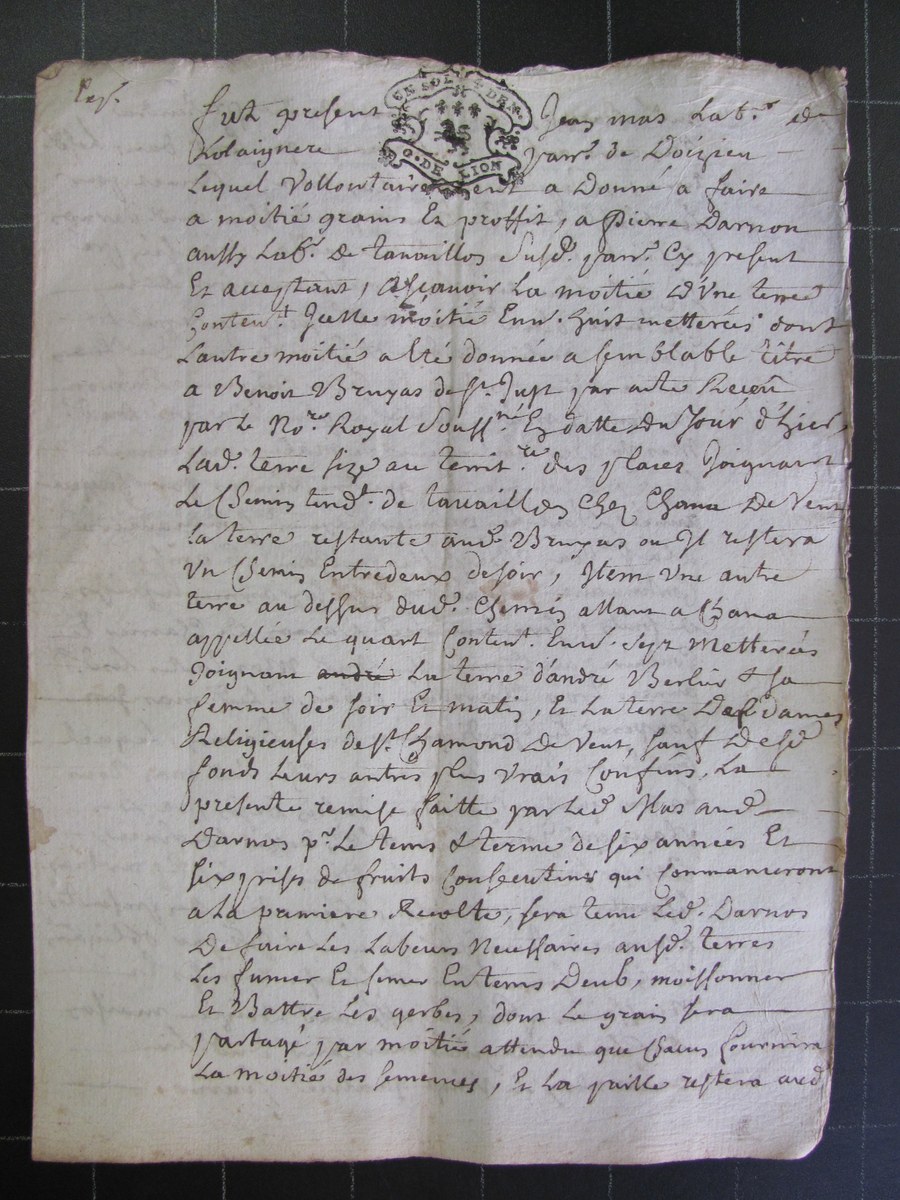 Fut present Jean mas Lab.r de
parr.e de Doizieu
Lequel Vollontairement a Donné a faire
a moitié grains Et proffit, a Pierre Darnon
aussy Lab.r de tavaillos Susd. parr.e Cy present
Et acceptant, asscavoir La moitié d'Une terre
Conten.t Jcelle moitié Env. huit metterées dont
L'autre moitié a Eté donnée a semblable titre
a Benoit Bruyas de St Just par acte Receu
par Le No.re Royal Souss.né En datte Du Jour d'hier,
Lad. terre size au territ.re des places Joignant
Le Chemin tend.t de tavailles Chez Chana De Vent
la terre restante aud. Bruyas ou Jl restera
Un Chemin Entredeux de soir, Jtem Une autre
terre au dessus dud. Chemin allant a Chana
appellée Le quart Conten.t Env. Sept Metterées
Joignant andré La terre d'andré Berlier & sa
femme de soir Et matin, Et La terre Des Dames
Religieuses de St Chamond De Vent, sauf De sd.
fonds Leurs autres plus vrais Confins. La
presente remise faitte par Led. Mas aud.
Darnon p.r Le tems & terme de six années Et
six prises de fruits Consecutives qui Commanceront
a La premiere Recolte, sera tenu Led. Darnon
De faire Les Labeurs Necessaires ausd. terres
Les fumer Et semer En tems Deub, moissonner
Et Battre Les gerbes, dont Le grain sera
partagé par moitié attendu que Chacun fournira
La moitié des semences, Et La paille restera aud.
EN SOL DEN
G. DE LION